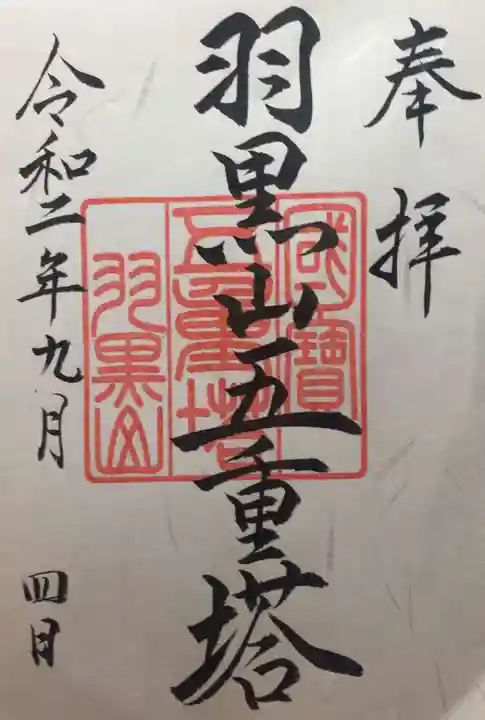 奉拝
羽黒山五重塔
國寳
五重塔
羽黒山
令和二年九月四日